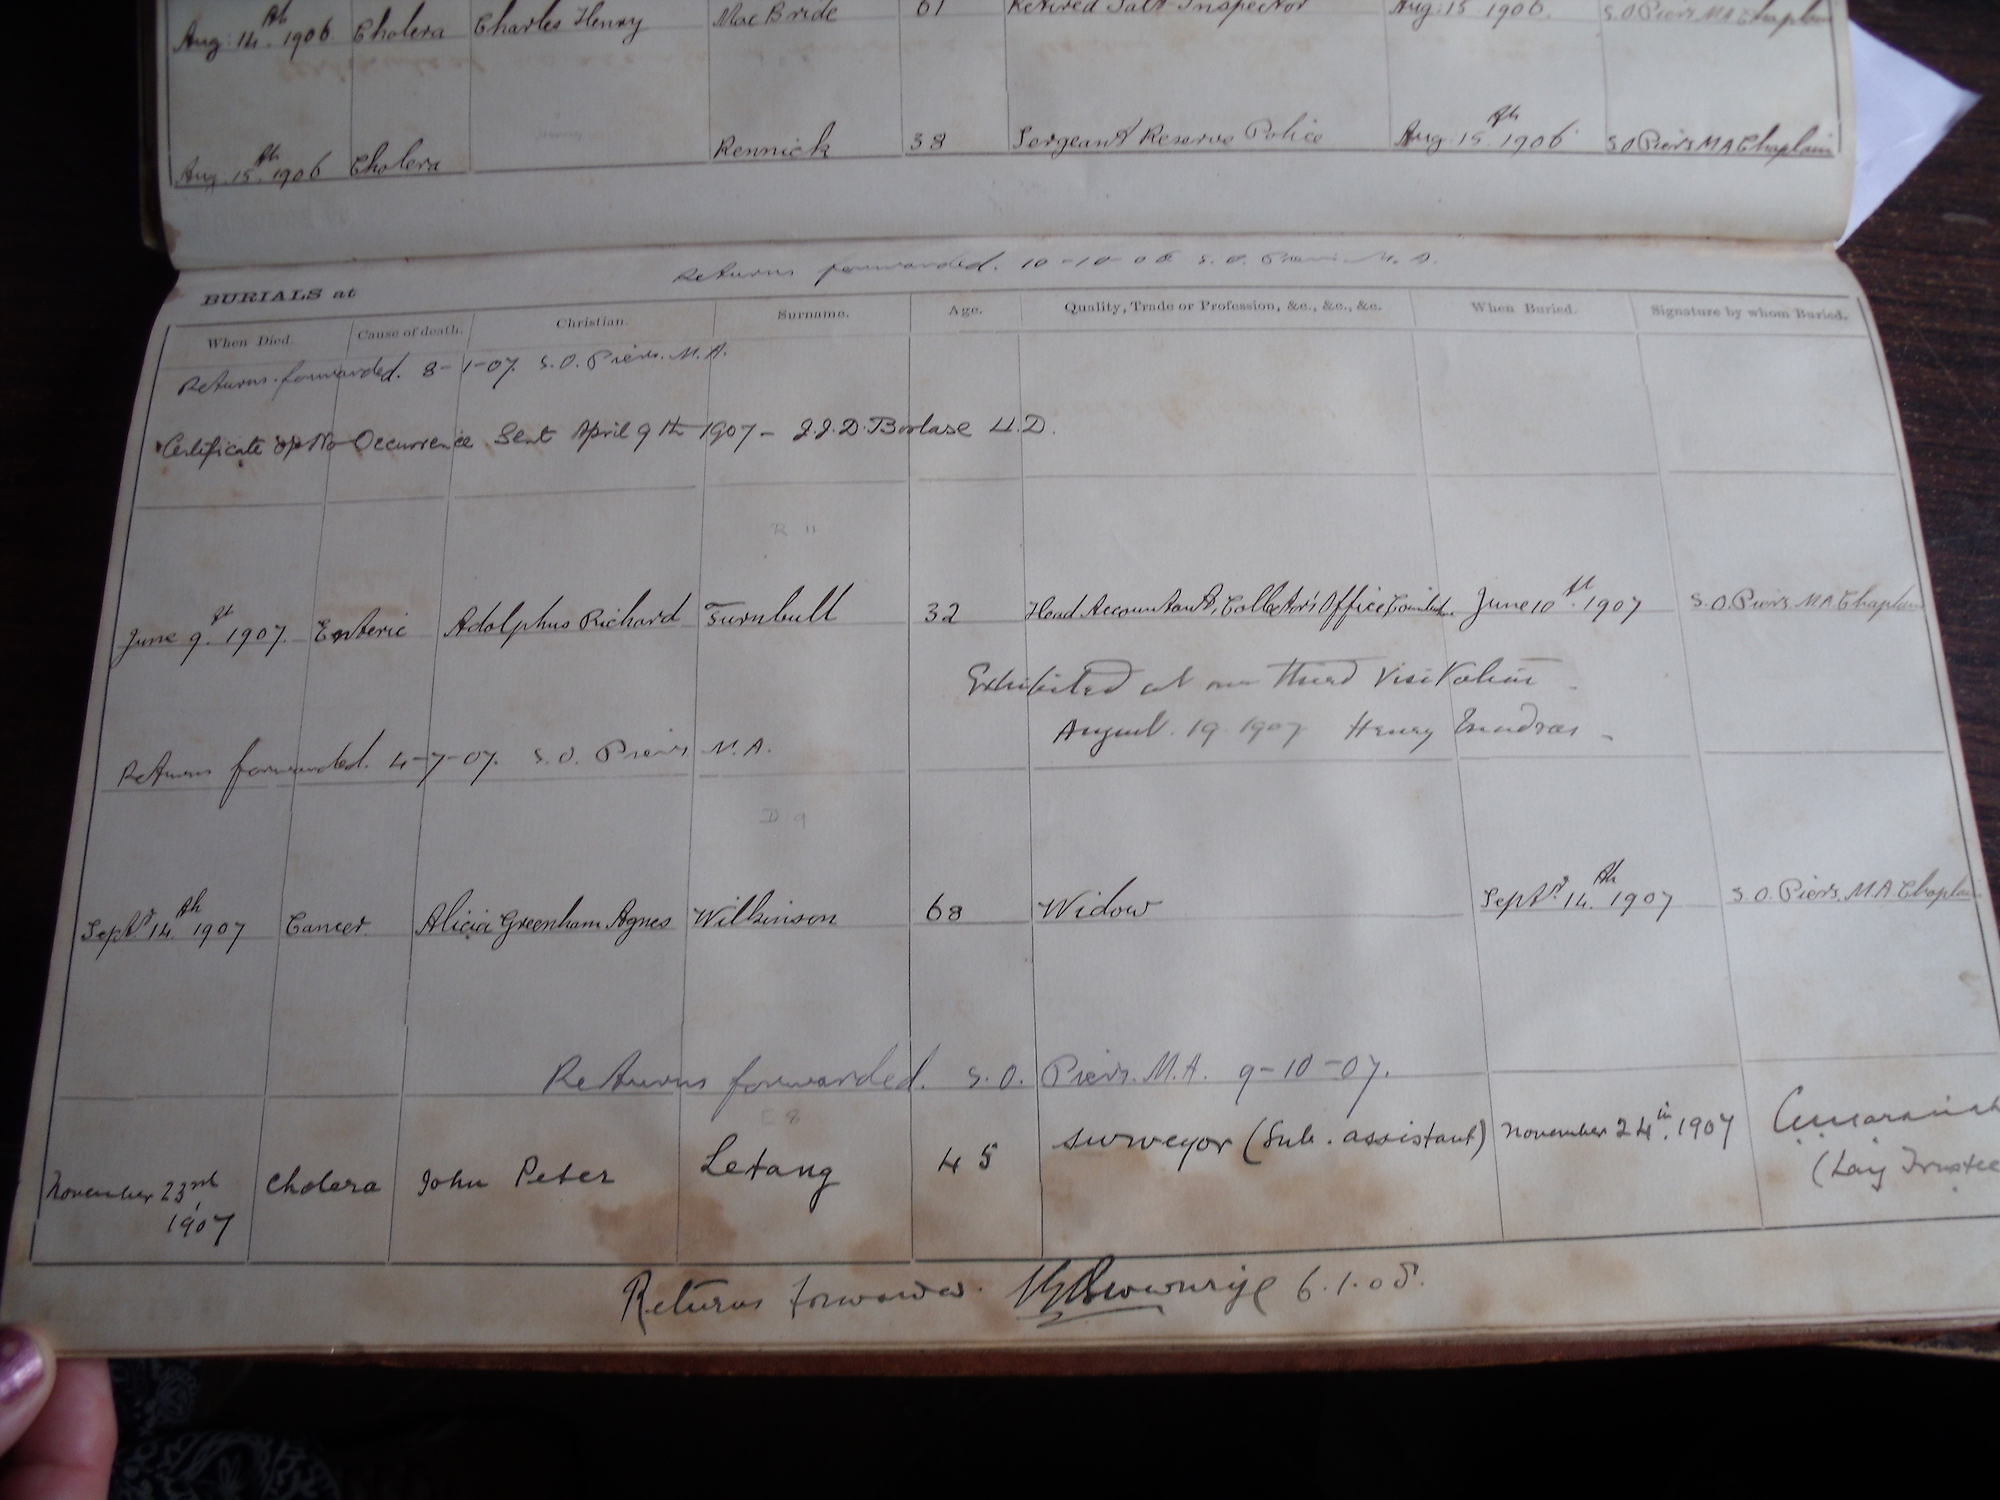 Aug: 14th 1906 Cholera Charles Henry MacBride 61 Retired Salt Inspector Aug: 15 1906. S.O. Piers M.A Chaplain
Aug. 15th 1906 Cholera Rennick 38 Sergeant Reserve Police Aug. 15th 1906 S.O. Piers M A Chaplain
Returns forwarded. 10-10-06 S.O. Piers M.A.
BURIALS at
When Died. Cause of death. Christian. Surname. Age. Quality, Trade or Profession, &c., &c., &c. When Buried. Signature by whom Buried.
Returns forwarded. 8-1-07. S.O. Piers. M.A.
Certificate of No Occurrence Sent April 9th 1907 - J.J.D. Borlase
R 11
June 9th 1907. Enteric Adolphus Richard Turnbull 32 Head Accountant, Collector's Office, June 10th 1907 S.O. Piers. M.A Chaplain
Exhibited at our Third Visitation
August. 19. 1907 Henry Madras -
Returns forwarded. 4-7-07. S.O. Piers M.A.
D 9
Septr 14th 1907 Cancer. Alicia Greenham Agnes Wilkinson 68 Widow Septr. 14th 1907 S.O. Piers. M.A Chaplain
Returns forwarded. S.O. Piers. M.A. 9-10-07.
E 8
November 23rd 1907 Cholera John Peter Letang 45 Surveyor (Sub. assistant) November 24th. 1907
(Lay Trustee
Returns forwarded. 6.1.08.